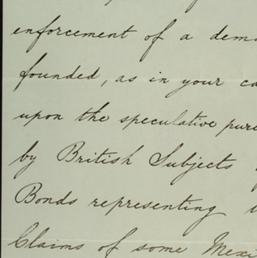 enforcement of a dem
founded, as in your ca
upon the speculative pur
by British Subjects
Bonds representing
Claims of some Mexi